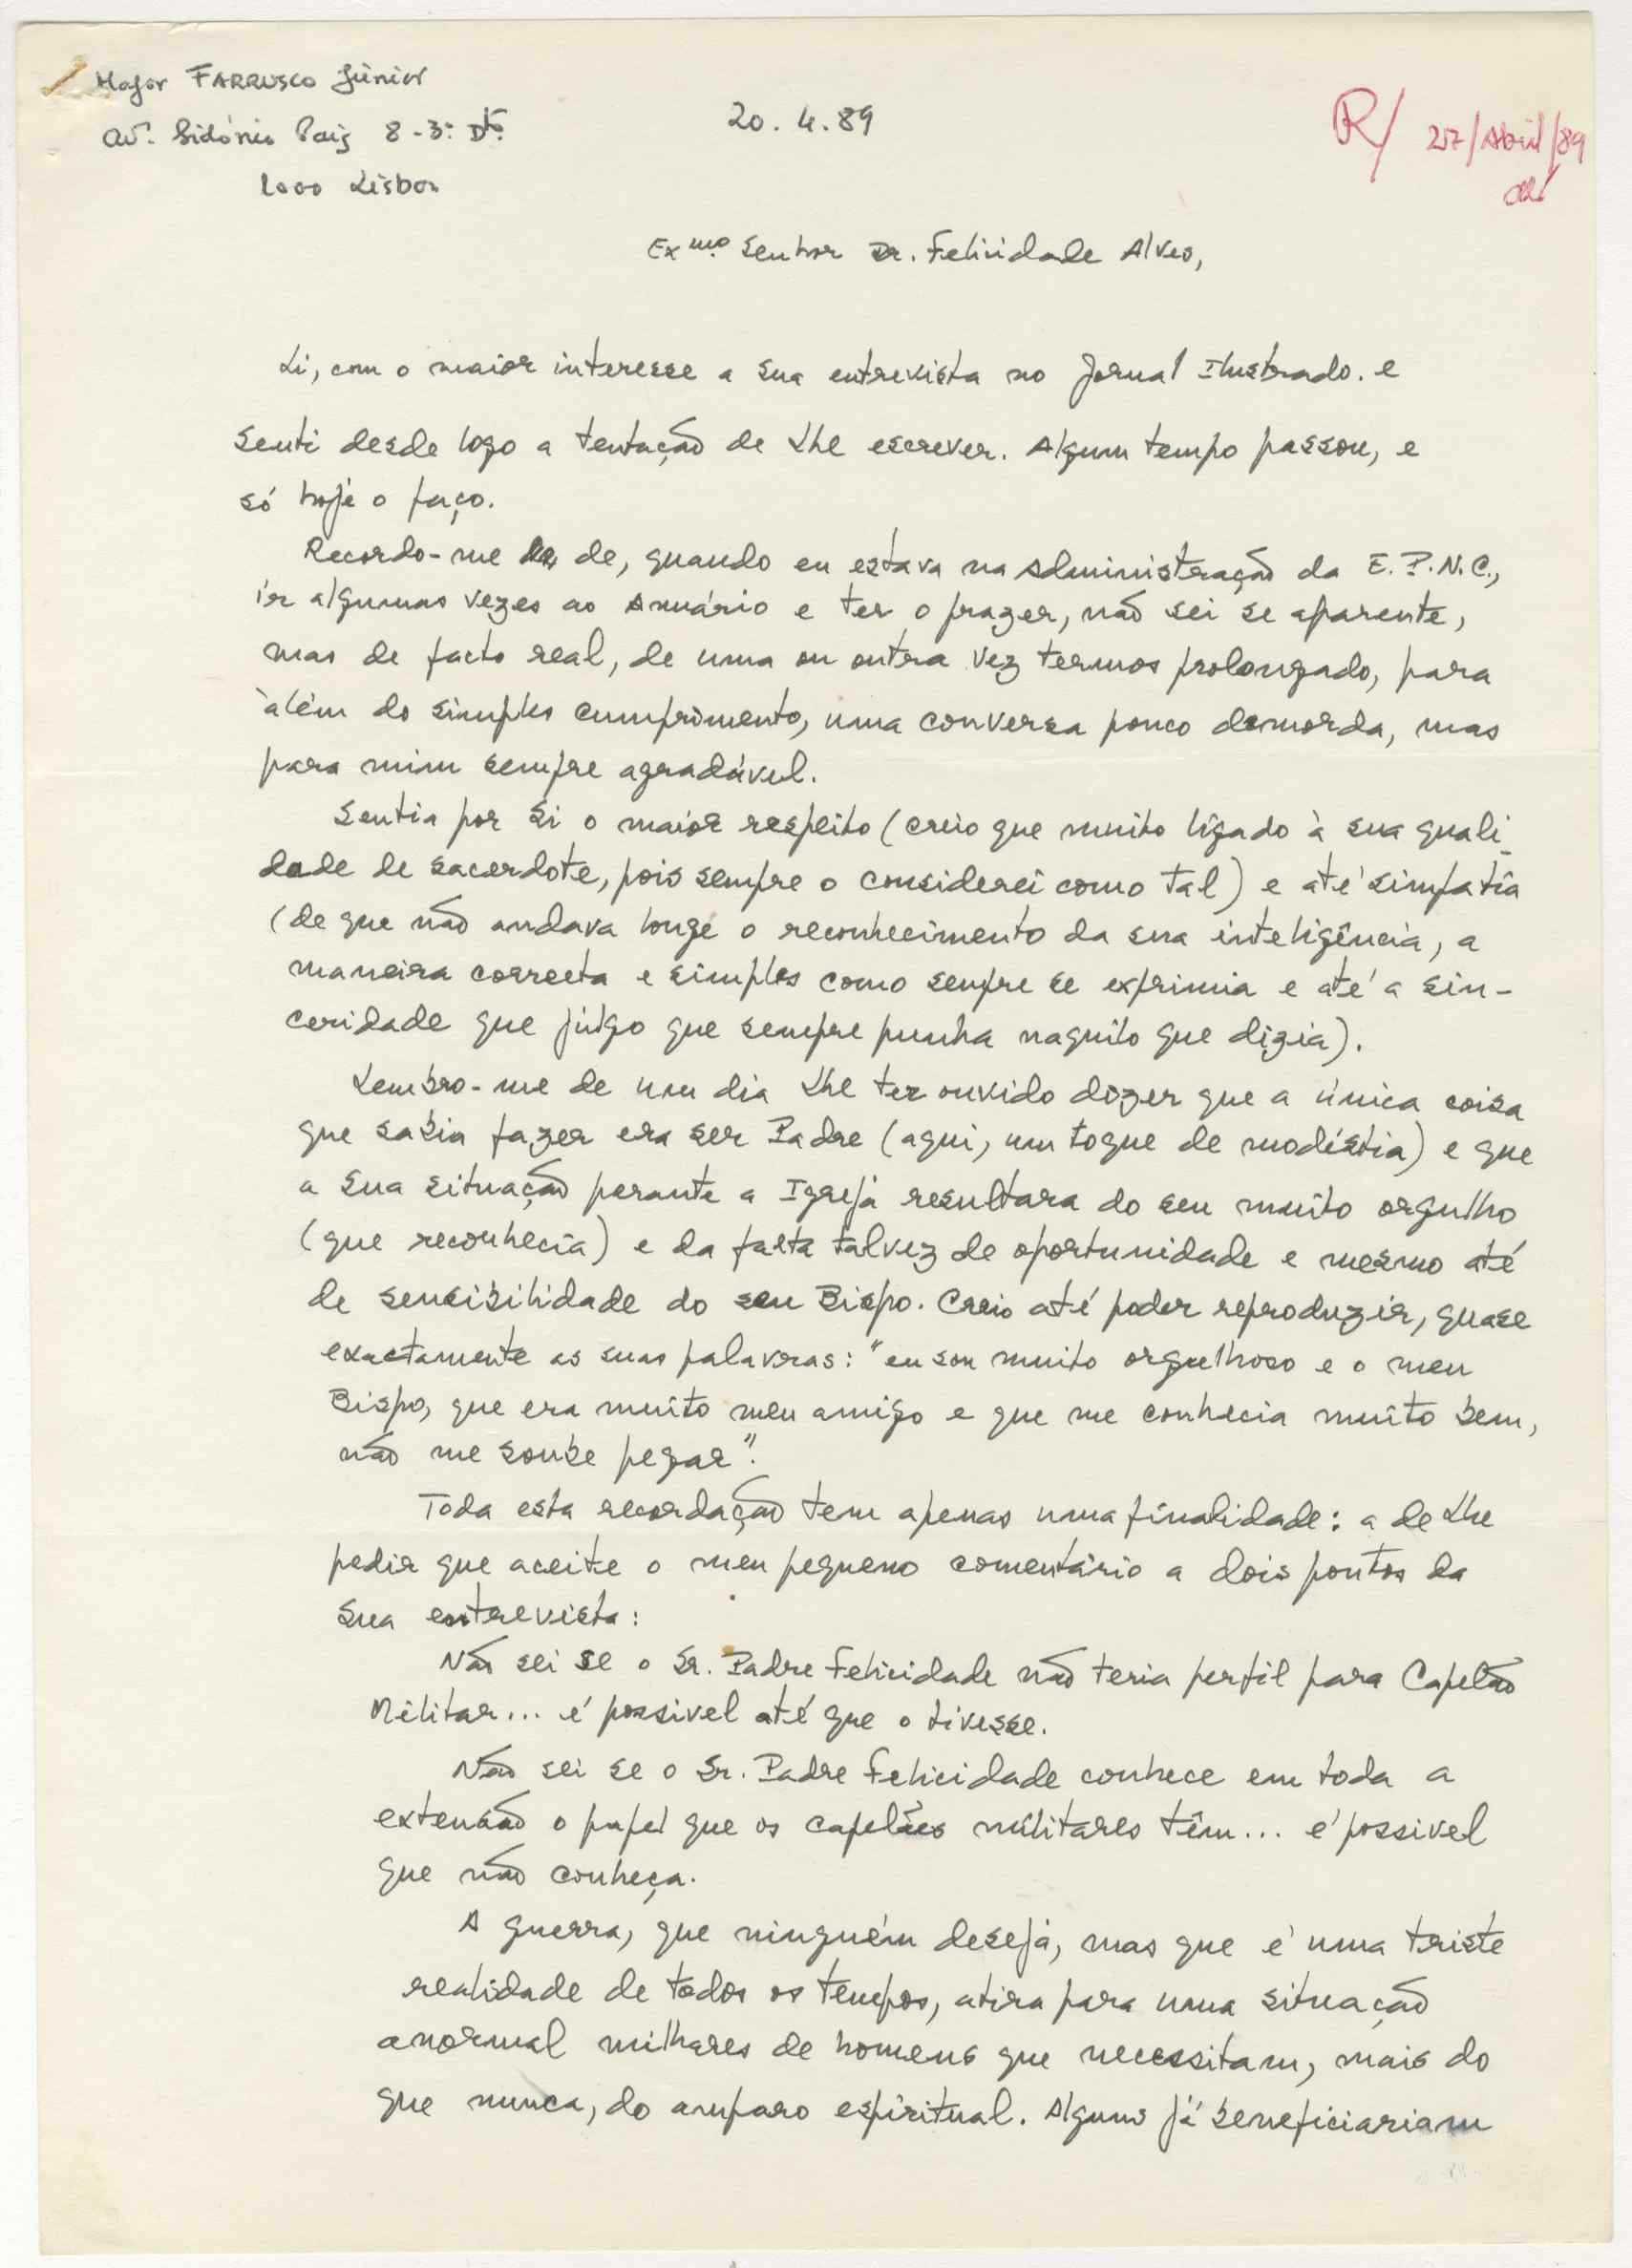 Major FARRUSCO Júnior
Av. Sidónio Pais 8-3º Dtº
1000 Lisboa
20.4.89
R/ 27/Abril/89
Exmº Senhor Dr. Felicidade Alves,
Li, com o maior interesse a sua entrevista no Jornal Ilustrado. e
senti desde logo a tentação de Lhe escrever. Algum tempo passou, e
só hoje o faço.
Recordo-me de, quando eu estava na Administração da E.P.N.C.,
ir algumas vezes ao Anuário e ter o prazer, não sei se aparente,
mas de facto real, de uma ou outra vez termos prolongado, para
além do simples cumprimento, uma conversa pouco demorda, mas
para mim sempre agradável.
Sentia por Si o maior respeito (creio que muito ligado à sua quali-
dade de sacerdote, pois sempre o considerei como tal) e até simpatia
(de que não andava longe o reconhecimento da sua inteligência, a
maneira correcta e simples como sempre se exprimia e até a sin-
ceridade que julgo que sempre punha naquilo que dizia).
Lembro-me de um dia Lhe ter ouvido dizer que a única coisa
que sabia fazer era ser Padre (aqui, um toque de modéstia) e que
a sua situação perante a Igreja resultara do seu muito orgulho
(que reconhecia) e da falta talvez de oportunidade e mesmo até
de sensibilidade do seu Bispo. Creio até poder reproduzir, quase
exactamente as suas palavras: "eu sou muito orgulhoso e o meu
Bispo, que era muito meu amigo e que me conhecia muito bem,
não me soube pegar".
Toda esta recordação tem apenas uma finalidade: a de Lhe
pedir que aceite o meu pequeno comentário a dois pontos da
sua entrevista:
Não sei se o Sr. Padre Felicidade não teria perfil para Capelão
Militar... é possivel até que o tivesse.
Não sei se o Sr. Padre Felicidade conhece em toda a
extensão o papel que os capelães militares têm... é possivel
que não conheça.
A guerra, que ninguém deseja, mas que é uma triste
realidade de todos os tempos, atira para uma situação
anormal milhares de homens que necessitam, mais do
que nunca, do amparo espiritual. Alguns já beneficiariam